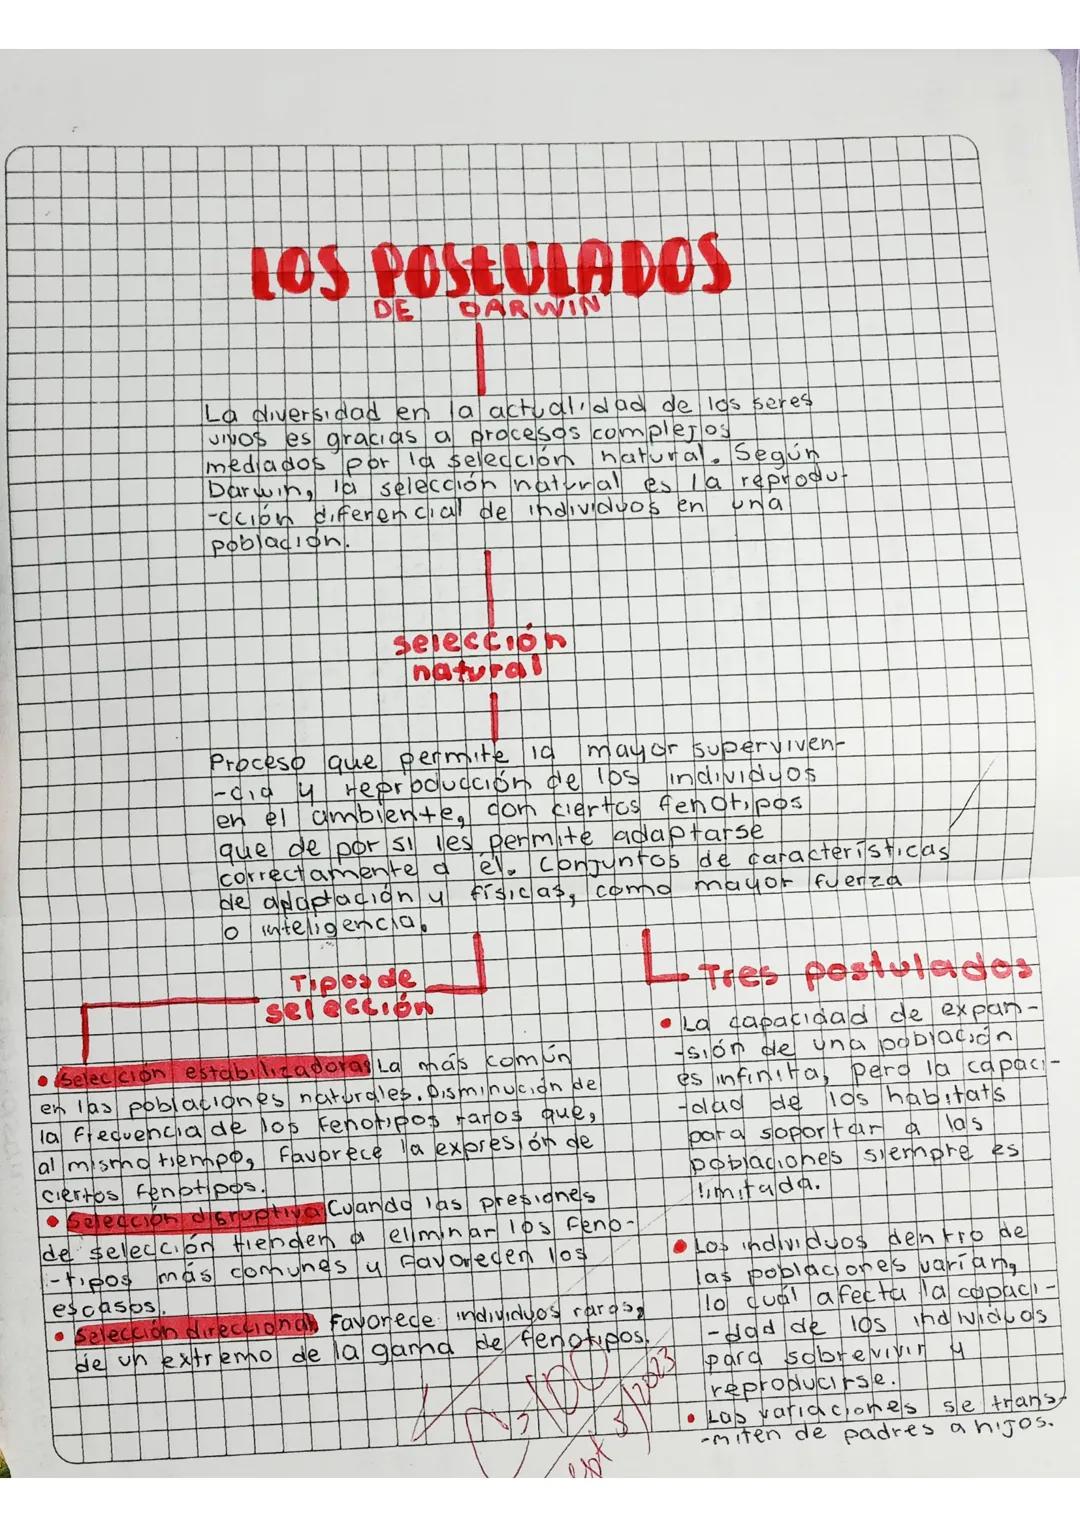 LOS POSTULADOS
DE DARWIN
La diversidad en la actualidad de los seres
vivos es gracias a procesos complejos
mediados por la selección natural. Según
Darwin, la selección natural es la reprodu-
-cción diferencial de individuos en una
población.
selección
natural
Proceso que permite la mayor superviven-
-cia y reproducción de los individuos
en el ambiente, con ciertos fenotipos
que de por si les permite adaptarse
correctamente a él. Conjuntos de características
de adaptación y físicas, como mayor fuerza
o inteligencia.
Tipos de
selección
• Selección estabilizadoras La más común
en las poblaciones naturales. Disminución de
la frecuencia de los fenotipos raros que,
al mismo tiempo, favorece la expresión de
ciertos fenotipos.
• Selección disruptiva Cuando las presiones
de selección tienden a eliminar los feno-
-tipos más comunes y favorecen los
escasos.
• Selección direccional, favorece individuos raros,
de un extremo de la gama de fenotipos.
Tres postulados
• La capacidad de expan-
-sión de una población
es infinita, pero la capaci-
-dad de los habitats
para soportar a las
poblaciones siempre es
limitada.
• Los individuos dentro de
las poblaciones varían,
lo cuál afecta la capaci-
-dad de los individuos
para sobrevivir y
reproducirse.
• Las variaciones se trans-
-miten de padres a hijos.
5/2023